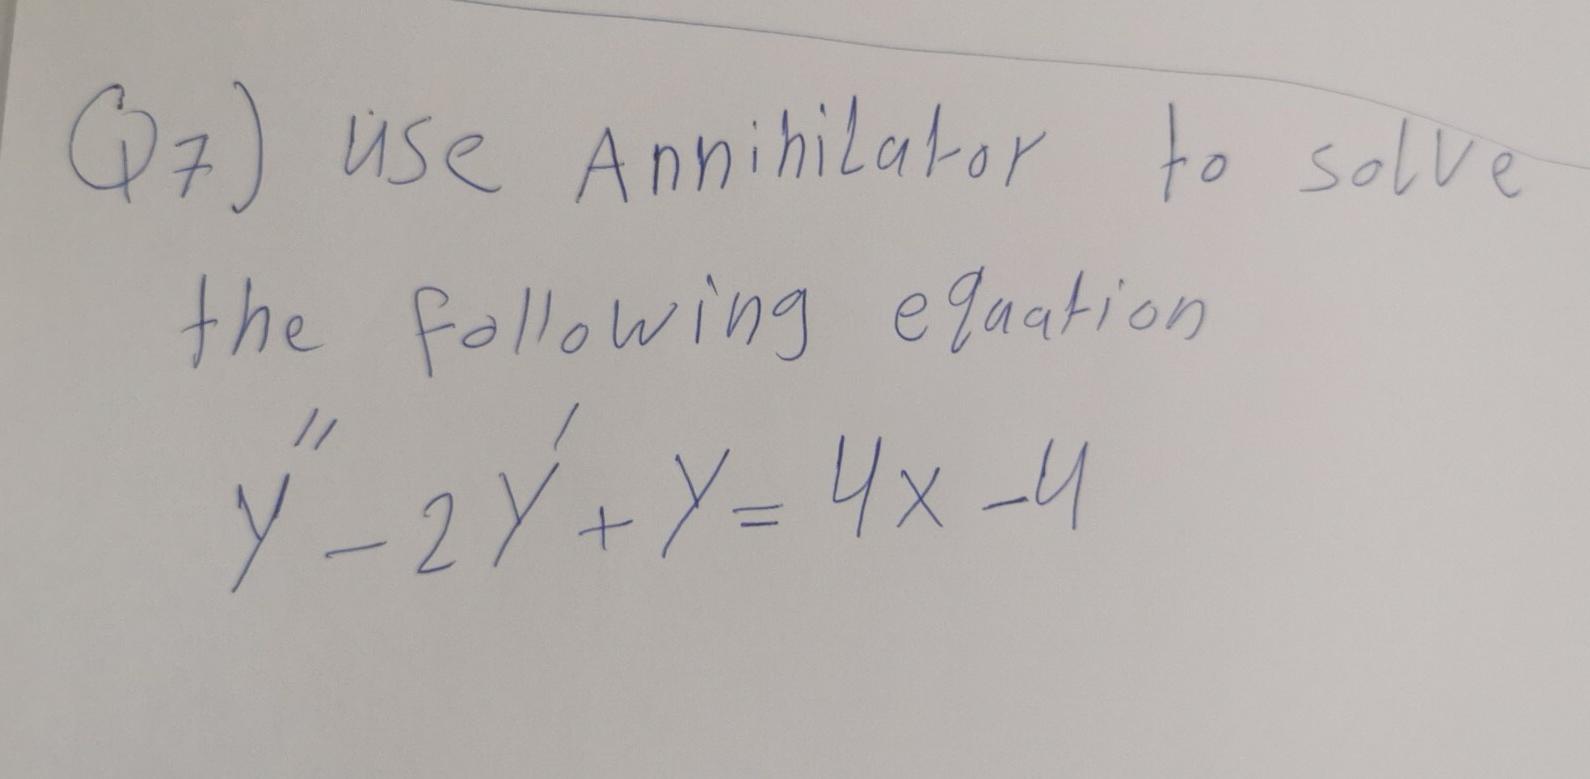 Q7) use Annihilator to solve
the following equation
y'' - 2y' + y = 4x - 4